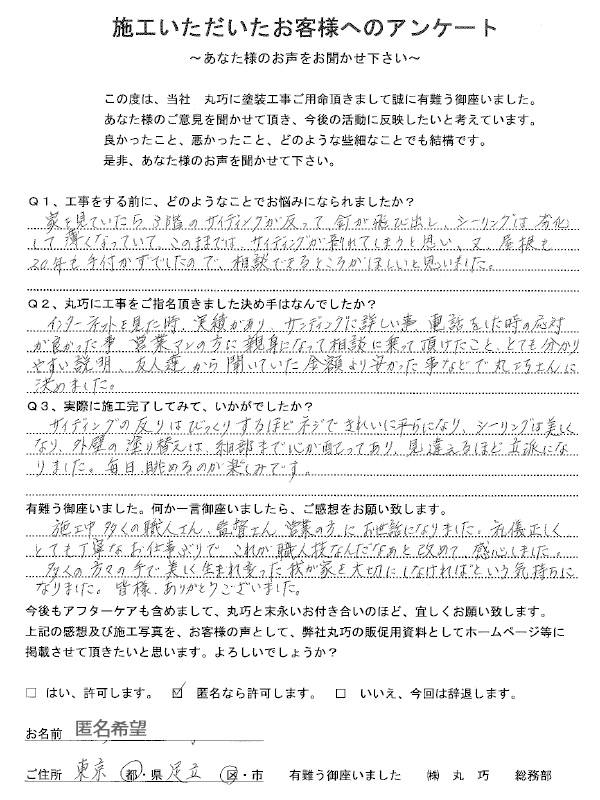 施工いただいたお客様へのアンケート
～あなた様のお声をお聞かせ下さい～
この度は、当社　丸巧に塗装工事ご用命頂きまして誠に有難う御座いました。
あなた様のご意見を聞かせて頂き、今後の活動に反映したいと考えています。
良かったこと、悪かったこと、どのような些細なことでも結構です。
是非、あなた様のお声を聞かせて下さい。
Q1、工事をする前に、どのようなことでお悩みになられましたか？
家を見ていたら3階のサイディングが反って釘が飛び出し、シーリングは劣化
して薄くなっていて、このままでは、サイディングが割れてしまうと思い、又、屋根も
20年も手付かずでしたので、相談できるところがほしいと思いました。
Q2、丸巧に工事をご指名頂きました決め手はなんでしたか？
インターネットを見た時、実績があり、サンディングに詳しい事、電話をした時の応対
が良かった事、営業マンの方に親身になって相談に乗って頂けたこと、とても分かり
やすい説明、友人達から聞いていた金額より安かった事などで丸巧さんに
決めました。
Q3、実際に施工完了してみて、いかがでしたか？
サイディングの反りはびっくりするほどネジできれいに平らになり、シーリングは美しく
なり、外壁の塗り替えは細部まで心が配ってあり、見違えるほど立派にな
りました。毎日眺めるのが楽しみです。
有難う御座いました。何か一言御座いましたら、ご感想をお願い致します。
施工中多くの職人さん、監督さん、営業の方にお世話になりました。礼儀正しく
とても丁寧なお仕事ぶりで、これが職人技なんだなあと改めて感心しました。
多くの方々の手で美しく生まれ変った我が家を大切にしなければという気持ちに
なりました。皆様、ありがとうございました。
今後もアフターケアも含めまして、丸巧と末永いお付き合いのほど、宜しくお願い致します。
上記の感想及び施工写真を、お客様の声として、弊社丸巧の販促用資料としてホームページ等に
掲載させて頂きたいと思います。よろしいでしょうか？
□ はい、許可します。 ☑ 匿名なら許可します。 □ いいえ、今回は辞退します。
お名前 匿名希望
ご住所 東京 都・県 足立 区・市 有難う御座いました ㈱ 丸 巧 総務部